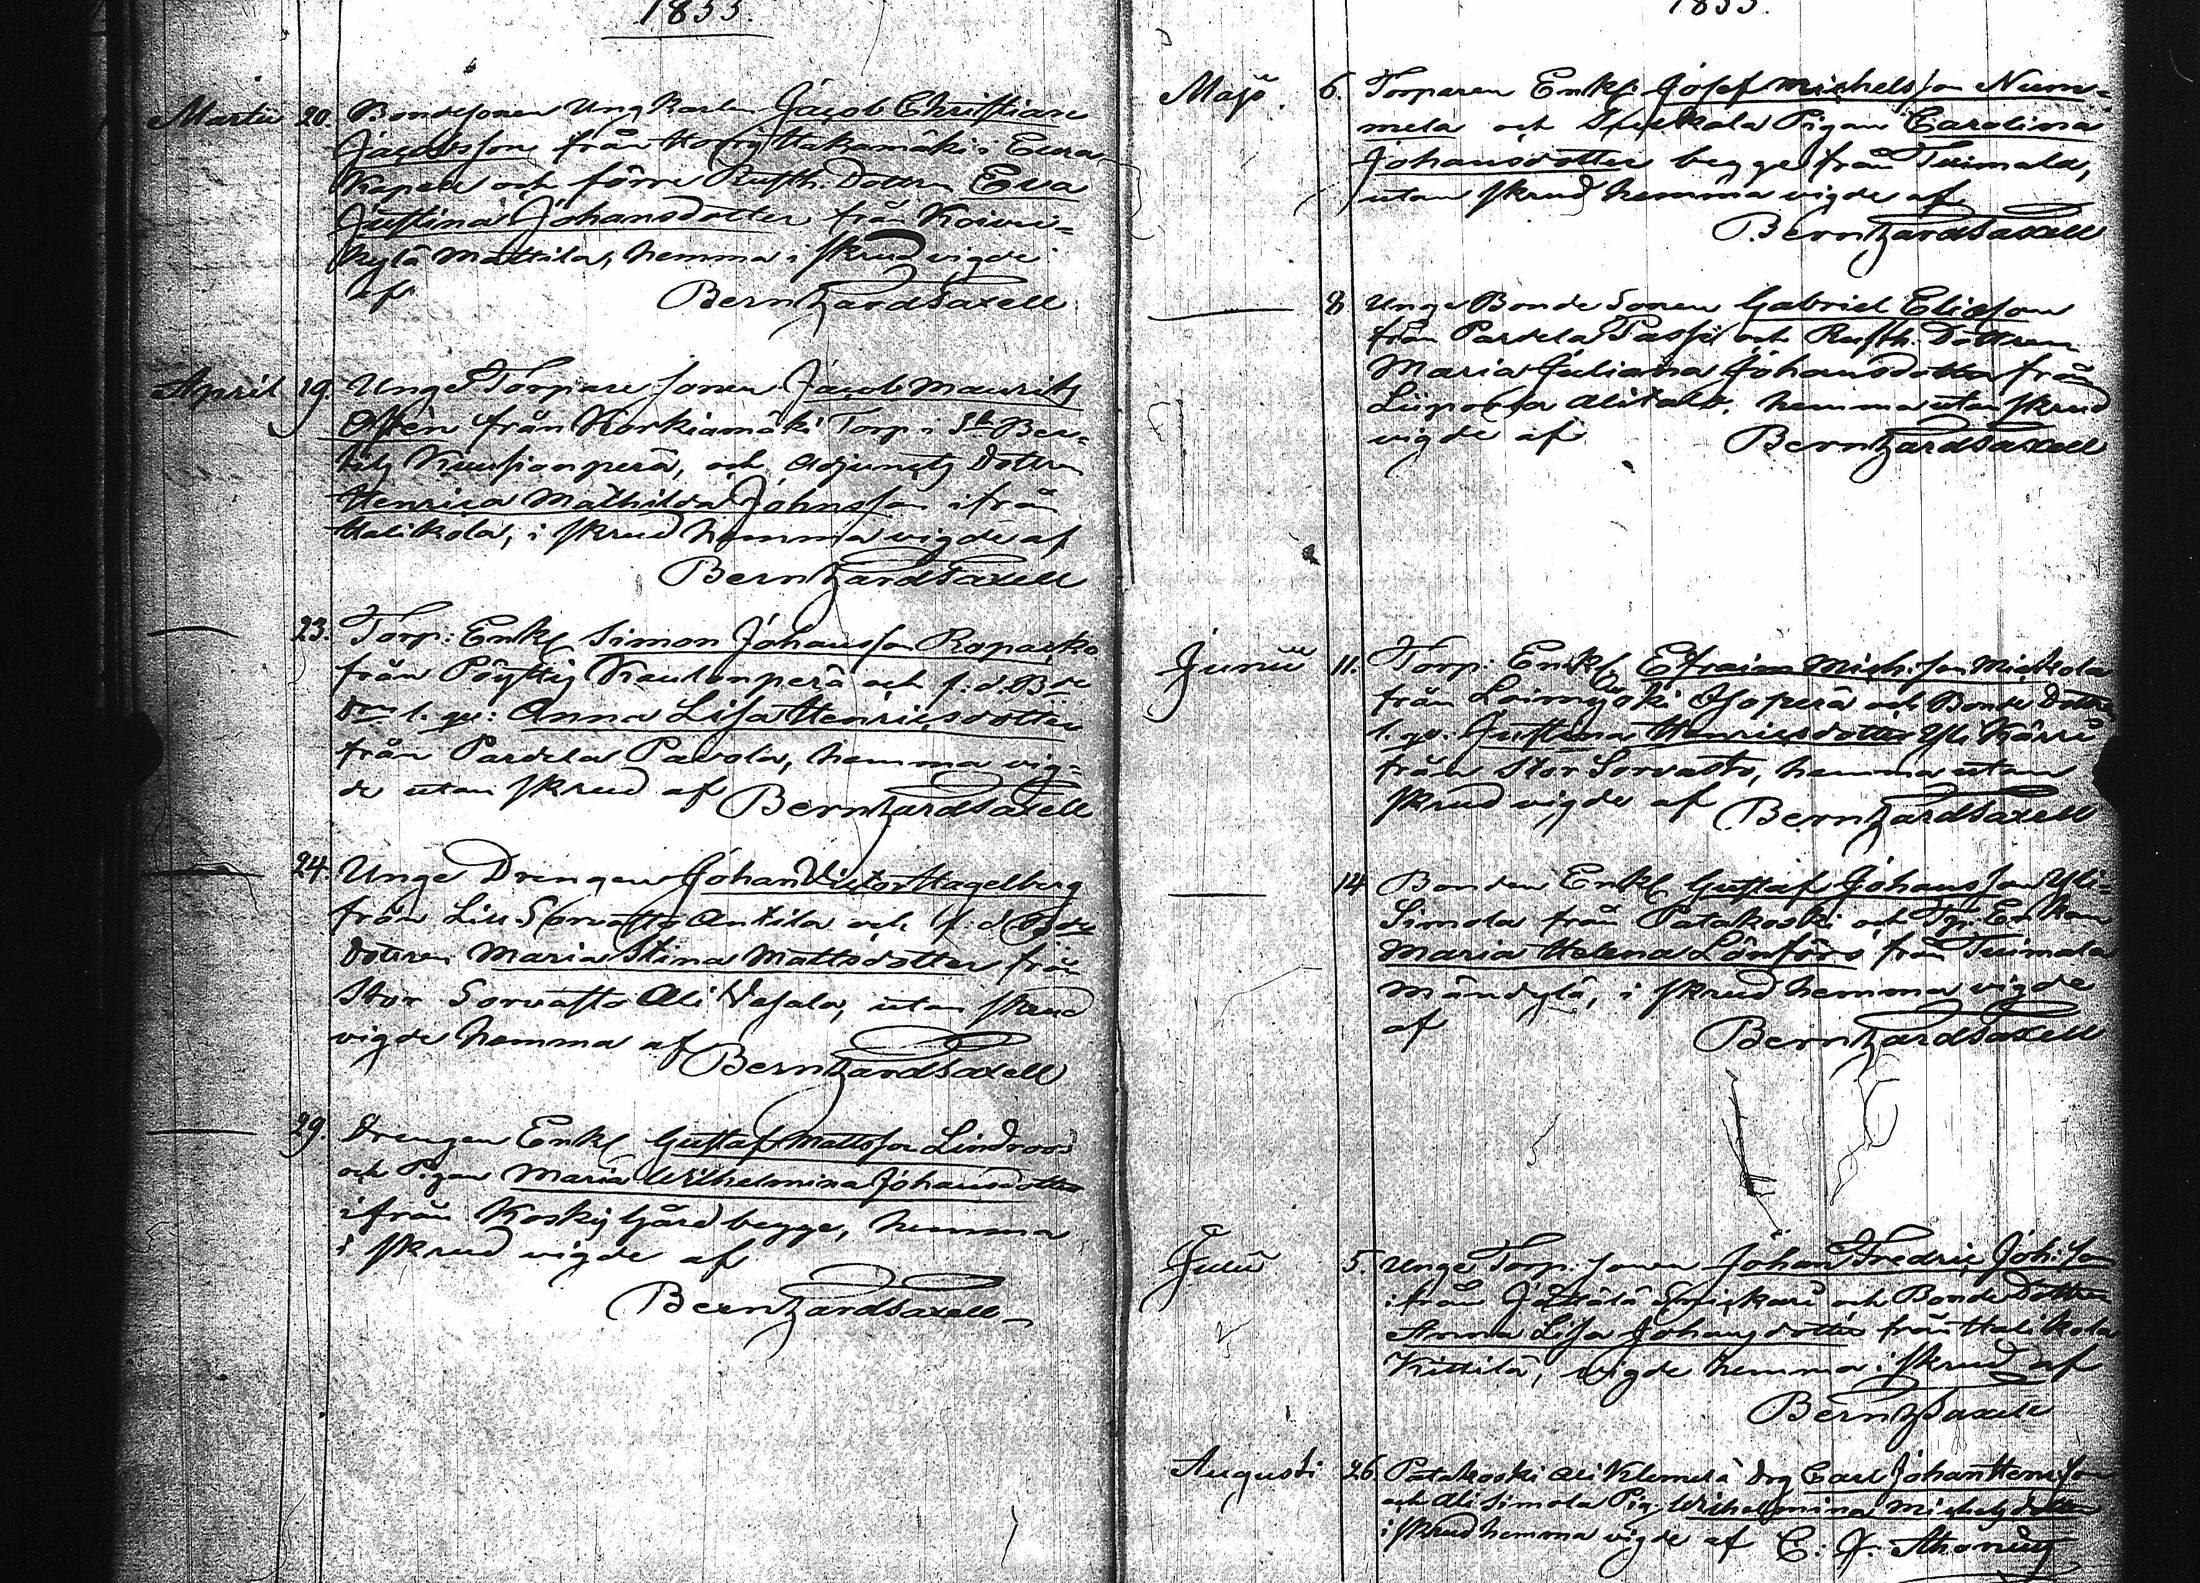 1855.
Martii 20. Bondesonen Ung Karlen Jacob Christian
Jacobsson från Hong Hakamäki i Eura
Kapell och förre Rusth. Dottren Eva
Justina Johansdotter från Koivu=
kylä Mattila, hemma i skrud vigde
af Bernhard Saxell
April 19. Unge Torpare sonen Jacob Maurits
från Korkiamäki Torp i St Ber=
tils Kuusianperä, och Adjuncts Dottren
Henrica Mathilda Johnsson ifrån
Halikola, i skrud hemma vigde af
Bernhard Saxell
23. Torp: Enkl Simon Johansson
från Pöyttis Kaulanperä och f: d. Bde
Drn l. qv: Anna Lisa Henricsdotter
från Pardela Pavola, hemma vig=
de utan skrud af Bernhard Saxell
24. Unge Drengen Johan Victor Hagelberg
från Lill Sorvasto Anttila och f: d.
Dottren Maria Stina Mattsdotter från
Stor Sorvasto Ali Vesala, utan skrud
vigde hemma af Bernhard Saxell
29. Drengen Enkl Gustaf Mattsson Lindroos
och Pigan Maria Wilhelmina Johansdotter
ifrån Koskis Gård begge, hemma
i skrud vigde af
Bernhard Saxell
1855.
Maji 6. Torparen Enkl: Josef Michelsson Num=
mela och Pigan Carolina
Johansdotter begge från Tuimala,
utan skrud hemma vigde af
Bernhard Saxell
8 Unge Bonde Sonen Gabriel Eliasson
från Pardela Passi och Rusth. Dottren
Maria Juliana Johansdotter från
Liipola Alitalo, hemma utan skrud
vigde af Bernhard Saxell
Junii 11. Torp: Enkl Efraim Mich:son Mickola
från Loimijoki och Bonde Dottren
l. qv: Justina Henricsdotter Yli Kärri
från Stor Sorvasto, hemma utan
skrud vigde af Bernhard Saxell
14 Bonden Enkl Gustaf Johansson Yli=
Simola från Patakoski och Enkan
Maria Helena Lönfors från Tuimala
i skrud hemma vigde
af Bernhard Saxell
Julii 5. Unge Torp: sonen Johan Fredric Joh:son
ifrån och Bonde Dottren
Anna Lisa Johansdotter från Halikola
Kittilä, vigde hemma i skrud af
Bernh Saxell
Augusti 26. Patakoski Ali Klemelä Drg Carl Johan Henrsson
och Ali Simola Pig. Wilhelmina Michelsdotter
i skrud hemma vigde af C: J.